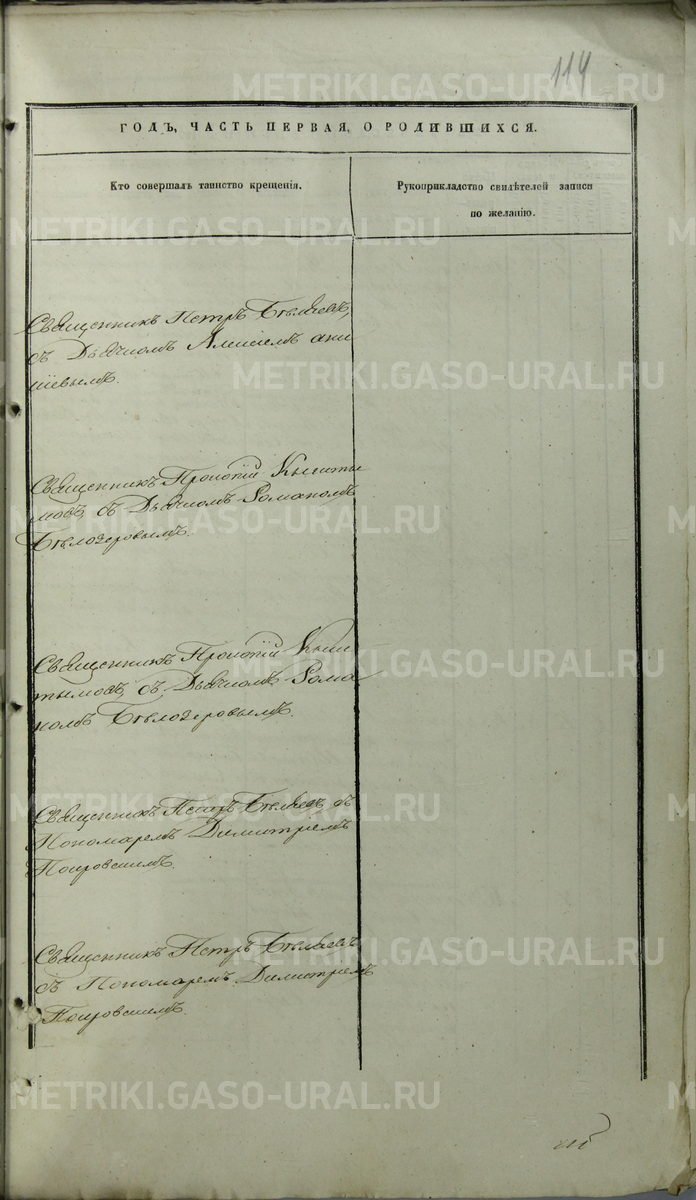 114
ГОДЪ, ЧАСТЬ ПЕРВАЯ, О РОДИВШИХСЯ.
Кто совершалъ таинство крещенія.
Рукоприкладство свидѣтелей записи
по желанію.
Священникъ Петръ Бѣляевъ,
съ Дьячкомъ Алексіемъ
Священникъ Прокопій Кышты
мовъ, съ Дьячкомъ Романомъ
Бѣлозеровымъ.
Священникъ Прокопій Кыш
тымовъ, съ Дьячкомъ Рома
номъ Бѣлозеровымъ.
Священникъ Петръ Бѣляевъ съ
Пономаремъ Димитріемъ
Покровскимъ.
Священникъ Петръ Бѣляевъ
съ Пономаремъ Димитріемъ
Покровскимъ.
METRIKI.GASO-URAL.RU